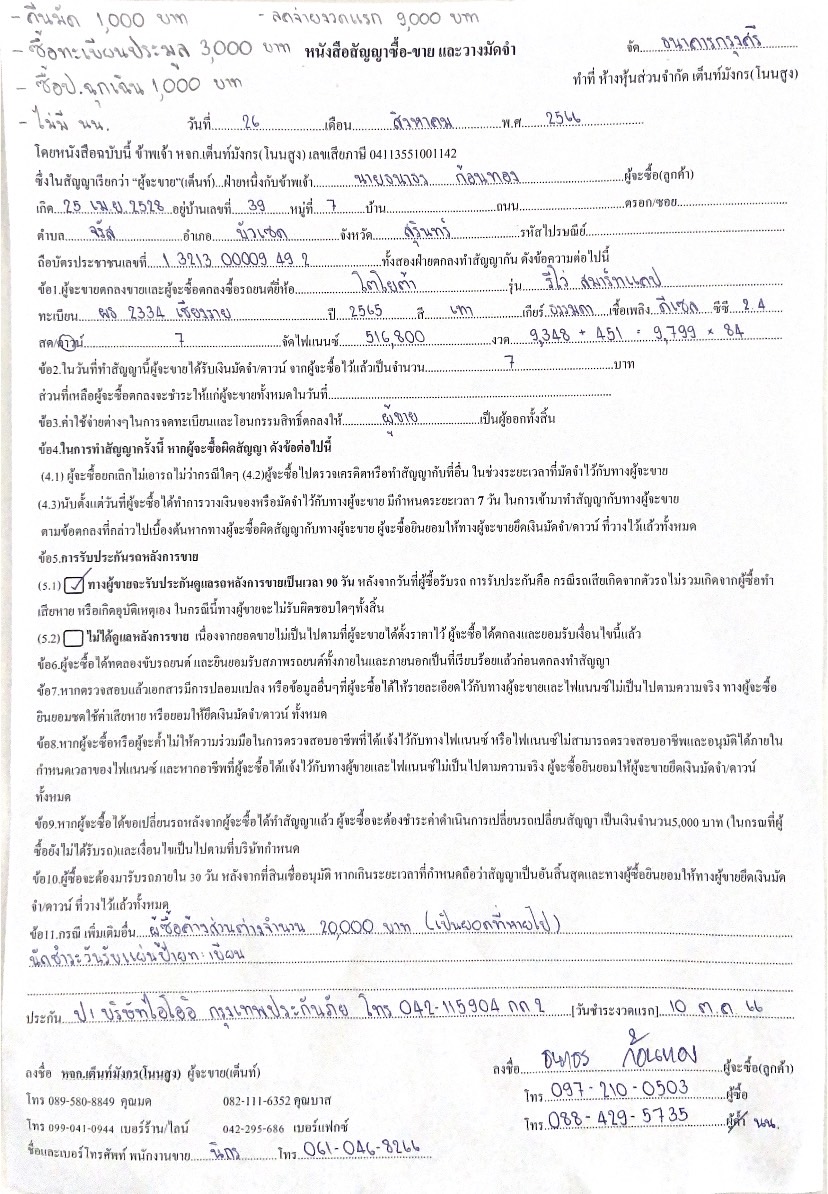 - คืนมัด 1,000 บาท - ลดจ่ายงวดแรก 9,000 บาท
- ซื้อทะเบียนประมูล 3,000 บาท หนังสือสัญญาซื้อ-ขาย และวางมัดจำ จัด ธนาคารกรุงศรี
- ซื้อป.ฉุกเฉิน 1,000 บาท ทำที่ ห้างหุ้นส่วนจำกัด เต็นท์มังกร(โนนสูง)
- ไม่มี นน. วันที่ 26 เดือน สิงหาคม พ.ศ. 2566
โดยหนังสือฉบับนี้ ข้าพเจ้า หจก.เต็นท์มังกร(โนนสูง) เลขเสียภาษี 04113551001142
ซึ่งในสัญญาเรียกว่า "ผู้จะขาย"(เต็นท์)...ฝ่ายหนึ่งกับข้าพเจ้า นายธนาธร ก้อนทอง ผู้จะซื้อ(ลูกค้า)
เกิด 25 เม.ย. 2528 อยู่บ้านเลขที่ 39 หมู่ที่ 7 บ้าน ถนน ตรอก/ซอย
ตำบล จรัส อำเภอ บัวเชด จังหวัด สุรินทร์ รหัสไปรษณีย์
ถือบัตรประชาชนเลขที่ 1 3213 00009 49 2 ทั้งสองฝ่ายตกลงทำสัญญากัน ดังข้อความต่อไปนี้
ข้อ1.ผู้จะขายตกลงขายและผู้จะซื้อตกลงซื้อรถยนต์ยี่ห้อ โตโยต้า รุ่น รีโว่ สมาร์ทแคป
ทะเบียน ผอ 2334 เชียงราย ปี 2565 สี เทา เกียร์ ธรรมดา เชื้อเพลิง ดีเซล ซีซี 2.4
สด/ดาวน์ 7 จัดไฟแนนซ์ 516,800 งวด 9,348 + 451 = 9,799 × 84
ข้อ2.ในวันที่ทำสัญญานี้ผู้จะขายได้รับเงินมัดจำ/ดาวน์ จากผู้จะซื้อไว้แล้วเป็นจำนวน 7 บาท
ส่วนที่เหลือผู้จะซื้อตกลงจะชำระให้แก่ผู้จะขายทั้งหมดในวันที่
ข้อ3.ค่าใช้จ่ายต่างๆในการจดทะเบียนและโอนกรรมสิทธิ์ตกลงให้ ผู้ขาย เป็นผู้ออกทั้งสิ้น
ข้อ4.ในการทำสัญญาครั้งนี้ หากผู้จะซื้อผิดสัญญา ดังข้อต่อไปนี้
(4.1) ผู้จะซื้อยกเลิกไม่เอารถไม่ว่ากรณีใดๆ (4.2)ผู้จะซื้อไปตรวจเครดิตหรือทำสัญญากับที่อื่น ในช่วงระยะเวลาที่มัดจำไว้กับทางผู้จะขาย
(4.3)นับตั้งแต่วันที่ผู้จะซื้อได้ทำการวางเงินจองหรือมัดจำไว้กับทางผู้จะขาย มีกำหนดระยะเวลา 7 วัน ในการเข้ามาทำสัญญากับทางผู้จะขาย
ตามข้อตกลงที่กล่าวไปเบื้องต้นหากทางผู้จะซื้อผิดสัญญากับทางผู้จะขาย ผู้จะซื้อยินยอมให้ทางผู้จะขายยึดเงินมัดจำ/ดาวน์ ที่วางไว้แล้วทั้งหมด
ข้อ5.การรับประกันรถหลังการขาย
(5.1) ☑ ทางผู้ขายจะรับประกันดูแลรถหลังการขายเป็นเวลา 90 วัน หลังจากวันที่ผู้ซื้อรับรถ การรับประกันคือ กรณีรถเสียเกิดจากตัวรถไม่รวมเกิดจากผู้ซื้อทำ
เสียหาย หรือเกิดอุบัติเหตุเอง ในกรณีนี้ทางผู้ขายจะไม่รับผิดชอบใดๆทั้งสิ้น
(5.2) ☐ ไม่ได้ดูแลหลังการขาย เนื่องจากยอดขายไม่เป็นไปตามที่ผู้จะขายได้ตั้งราคาไว้ ผู้จะซื้อได้ตกลงและยอมรับเงื่อนไขนี้แล้ว
ข้อ6.ผู้จะซื้อได้ทดลองขับรถยนต์ และยินยอมรับสภาพรถยนต์ทั้งภายในและภายนอกเป็นที่เรียบร้อยแล้วก่อนตกลงทำสัญญา
ข้อ7.หากตรวจสอบแล้วเอกสารมีการปลอมแปลง หรือข้อมูลอื่นๆที่ผู้จะซื้อได้ให้รายละเอียดไว้กับทางผู้จะขายและไฟแนนซ์ไม่เป็นไปตามความจริง ทางผู้จะซื้อ
ยินยอมชดใช้ค่าเสียหาย หรือยอมให้ยึดเงินมัดจำ/ดาวน์ ทั้งหมด
ข้อ8.หากผู้จะซื้อหรือผู้จะค้ำไม่ให้ความร่วมมือในการตรวจสอบอาชีพที่ได้แจ้งไว้กับทางไฟแนนซ์ หรือไฟแนนซ์ไม่สามารถตรวจสอบอาชีพและอนุมัติได้ภายใน
กำหนดเวลาของไฟแนนซ์ และหากอาชีพที่ผู้จะซื้อได้แจ้งไว้กับทางผู้ขายและไฟแนนซ์ไม่เป็นไปตามความจริง ผู้จะซื้อยินยอมให้ผู้จะขายยึดเงินมัดจำ/ดาวน์
ทั้งหมด
ข้อ9.หากผู้จะซื้อได้ขอเปลี่ยนรถหลังจากผู้จะซื้อได้ทำสัญญาแล้ว ผู้จะซื้อจะต้องชำระค่าดำเนินการเปลี่ยนรถเปลี่ยนสัญญา เป็นเงินจำนวน5,000 บาท (ในกรณีที่ผู้
ซื้อยังไม่ได้รับรถ)และเงื่อนไขเป็นไปตามที่บริษัทกำหนด
ข้อ10.ผู้ซื้อจะต้องมารับรถภายใน 30 วัน หลังจากที่สินเชื่ออนุมัติ หากเกินระยะเวลาที่กำหนดถือว่าสัญญาเป็นอันสิ้นสุดและทางผู้ซื้อยินยอมให้ทางผู้ขายยึดเงินมัด
จำ/ดาวน์ ที่วางไว้แล้วทั้งหมด
ข้อ11.กรณี เพิ่มเติมอื่น ผู้ซื้อค้างส่วนต่างจำนวน 20,000 บาท (เป็นยอดที่หายไป)
นัดชำระวันรับแผ่นป้ายทะเบียน
ประกัน ป1 บริษัทไอโออิ กรุงเทพประกันภัย โทร 042-115904 กด 2 [วันชำระงวดแรก] 10 ต.ค 66
ลงชื่อ หจก.เต็นท์มังกร(โนนสูง) ผู้จะขาย(เต็นท์) ลงชื่อ ธนาธร ก้อนทอง ผู้จะซื้อ(ลูกค้า)
โทร 089-580-8849 คุณมด 082-111-6352 คุณบาส โทร 097-210-0503 ผู้ซื้อ
โทร 099-041-0944 เบอร์ร้าน/ไลน์ 042-295-686 เบอร์แฟกซ์ โทร 088-429-5735 ผู้ค้ำ นน.
ชื่อและเบอร์โทรศัพท์ พนักงานขาย นิกร โทร 061-046-8266